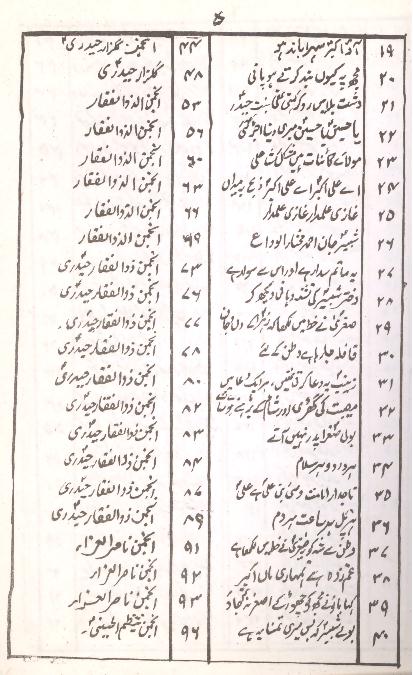 ۱۹ آؤ اکبر سہرا باندھو ۴۴ انجمن گلزار حیدری
۲۰ مجھ پہ کیوں بند کرتے ہو پانی ۴۸ گلزار حیدری
۲۱ دشت بلا میں رو کر کہتی تھی بنت حیدر ۵۳ انجمن الذوالفقار
۲۲ یا حسین یا حسین میری دنیا اجڑ گئی ۵۶ انجمن الذوالفقار
۲۳ مولائے کائنات ہیں مشکل کشا علی ۶۰ انجمن الذوالفقار
۲۴ اے علی اکبر اے علی اکبر ۶۳ انجمن الذوالفقار
۲۵ غازی علمدار غازی علمدار ۶۶ انجمن الذوالفقار
۲۶ شبیر جان احمد مختار الوداع ۶۹ انجمن الذوالفقار
۲۷ یہ ماتم سدا رہے اور اس سے سوا رہے ۷۳ انجمن ذوالفقار حیدری
۲۸ دختر شبیر کی تشنہ دہانی دیکھ کر ۷۶ انجمن ذوالفقار حیدری
۲۹ صغریٰ نے خط میں لکھا کہ ۷۷ انجمن ذوالفقار حیدری
۳۰ قافلہ جا رہا ہے وطن کے لئے ۷۸ انجمن ذوالفقار حیدری
۳۱ زینب یہ دعا کرتی تھیں ۸۰ انجمن ذوالفقار حیدری
۳۲ کی گھڑی اور شام کے ۸۲ انجمن ذوالفقار حیدری
۳۳ بولی صغرا پدر نہیں آتے ۸۳ انجمن ذوالفقار حیدری
۳۴ ہر درد و ہر سلام ۸۴ انجمن ذوالفقار حیدری
۳۵ تاجدار امامت علی ہے علی ۸۷ انجمن ذوالفقار حیدری
۳۶ ہر پل ہر ساعت ہر دم ۸۹ انجمن ذوالفقار حیدری
۳۷ وطن سے شہ کو صغریٰ نے خط میں لکھا ہے ۹۱ انجمن ناصر العزاء
۳۸ غم زدہ ہے تمہاری ماں اکبر ۹۲ انجمن ناصر العزاء
۳۹ کہا بانو نے مجھ کو چھوڑ کے اصغر نہ جاؤ ۹۳ انجمن ناصر العزاء
۴۰ بولے شبیر کہ بس تیری تمنا یہ ہے ۹۶ انجمن تنظیم الحسینی